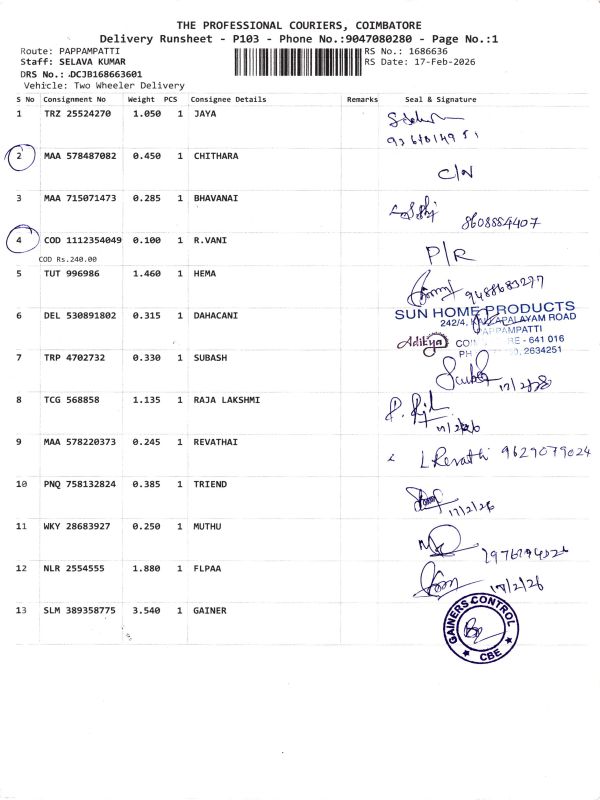 THE PROFESSIONAL COURIERS, COIMBATORE
Delivery Runsheet - P103 - Phone No.:9047080280 - Page No.:1
Route: PAPPAMPATTI
RS No.: 1686636
Staff: SELAVA KUMAR
RS Date: 17-Feb-2026
DRS No.: DCJB168663601
Vehicle: Two Wheeler Delivery
S No Consignment No Weight PCS Consignee Details Remarks Seal & Signature
1 TRZ 25524270 1.050 1 JAYA
2 MAA 578487082 0.450 1 CHITHARA C/N
3 MAA 715071473 0.285 1 BHAVANAI 8608884407
4 COD 1112354049 0.100 1 R.VANI P/R
COD Rs.240.00
5 TUT 996986 1.460 1 HEMA 9488683277
6 DEL 530891802 0.315 1 DAHACANI
SUN HOME PRODUCTS
242/4, ROAD
PAPPAMPATTI
Aditya
641 016
PH 2634251
7 TRP 4702732 0.330 1 SUBASH
8 TCG 568858 1.135 1 RAJA LAKSHMI
9 MAA 578220373 0.245 1 REVATHAI L Revathi 9629079024
10 PNQ 758132824 0.385 1 TRIEND 17/2/26
11 WKY 28683927 0.250 1 MUTHU
12 NLR 2554555 1.880 1 FLPAA 17/2/26
13 SLM 389358775 3.540 1 GAINER
GAINERS CONTROL
CBE